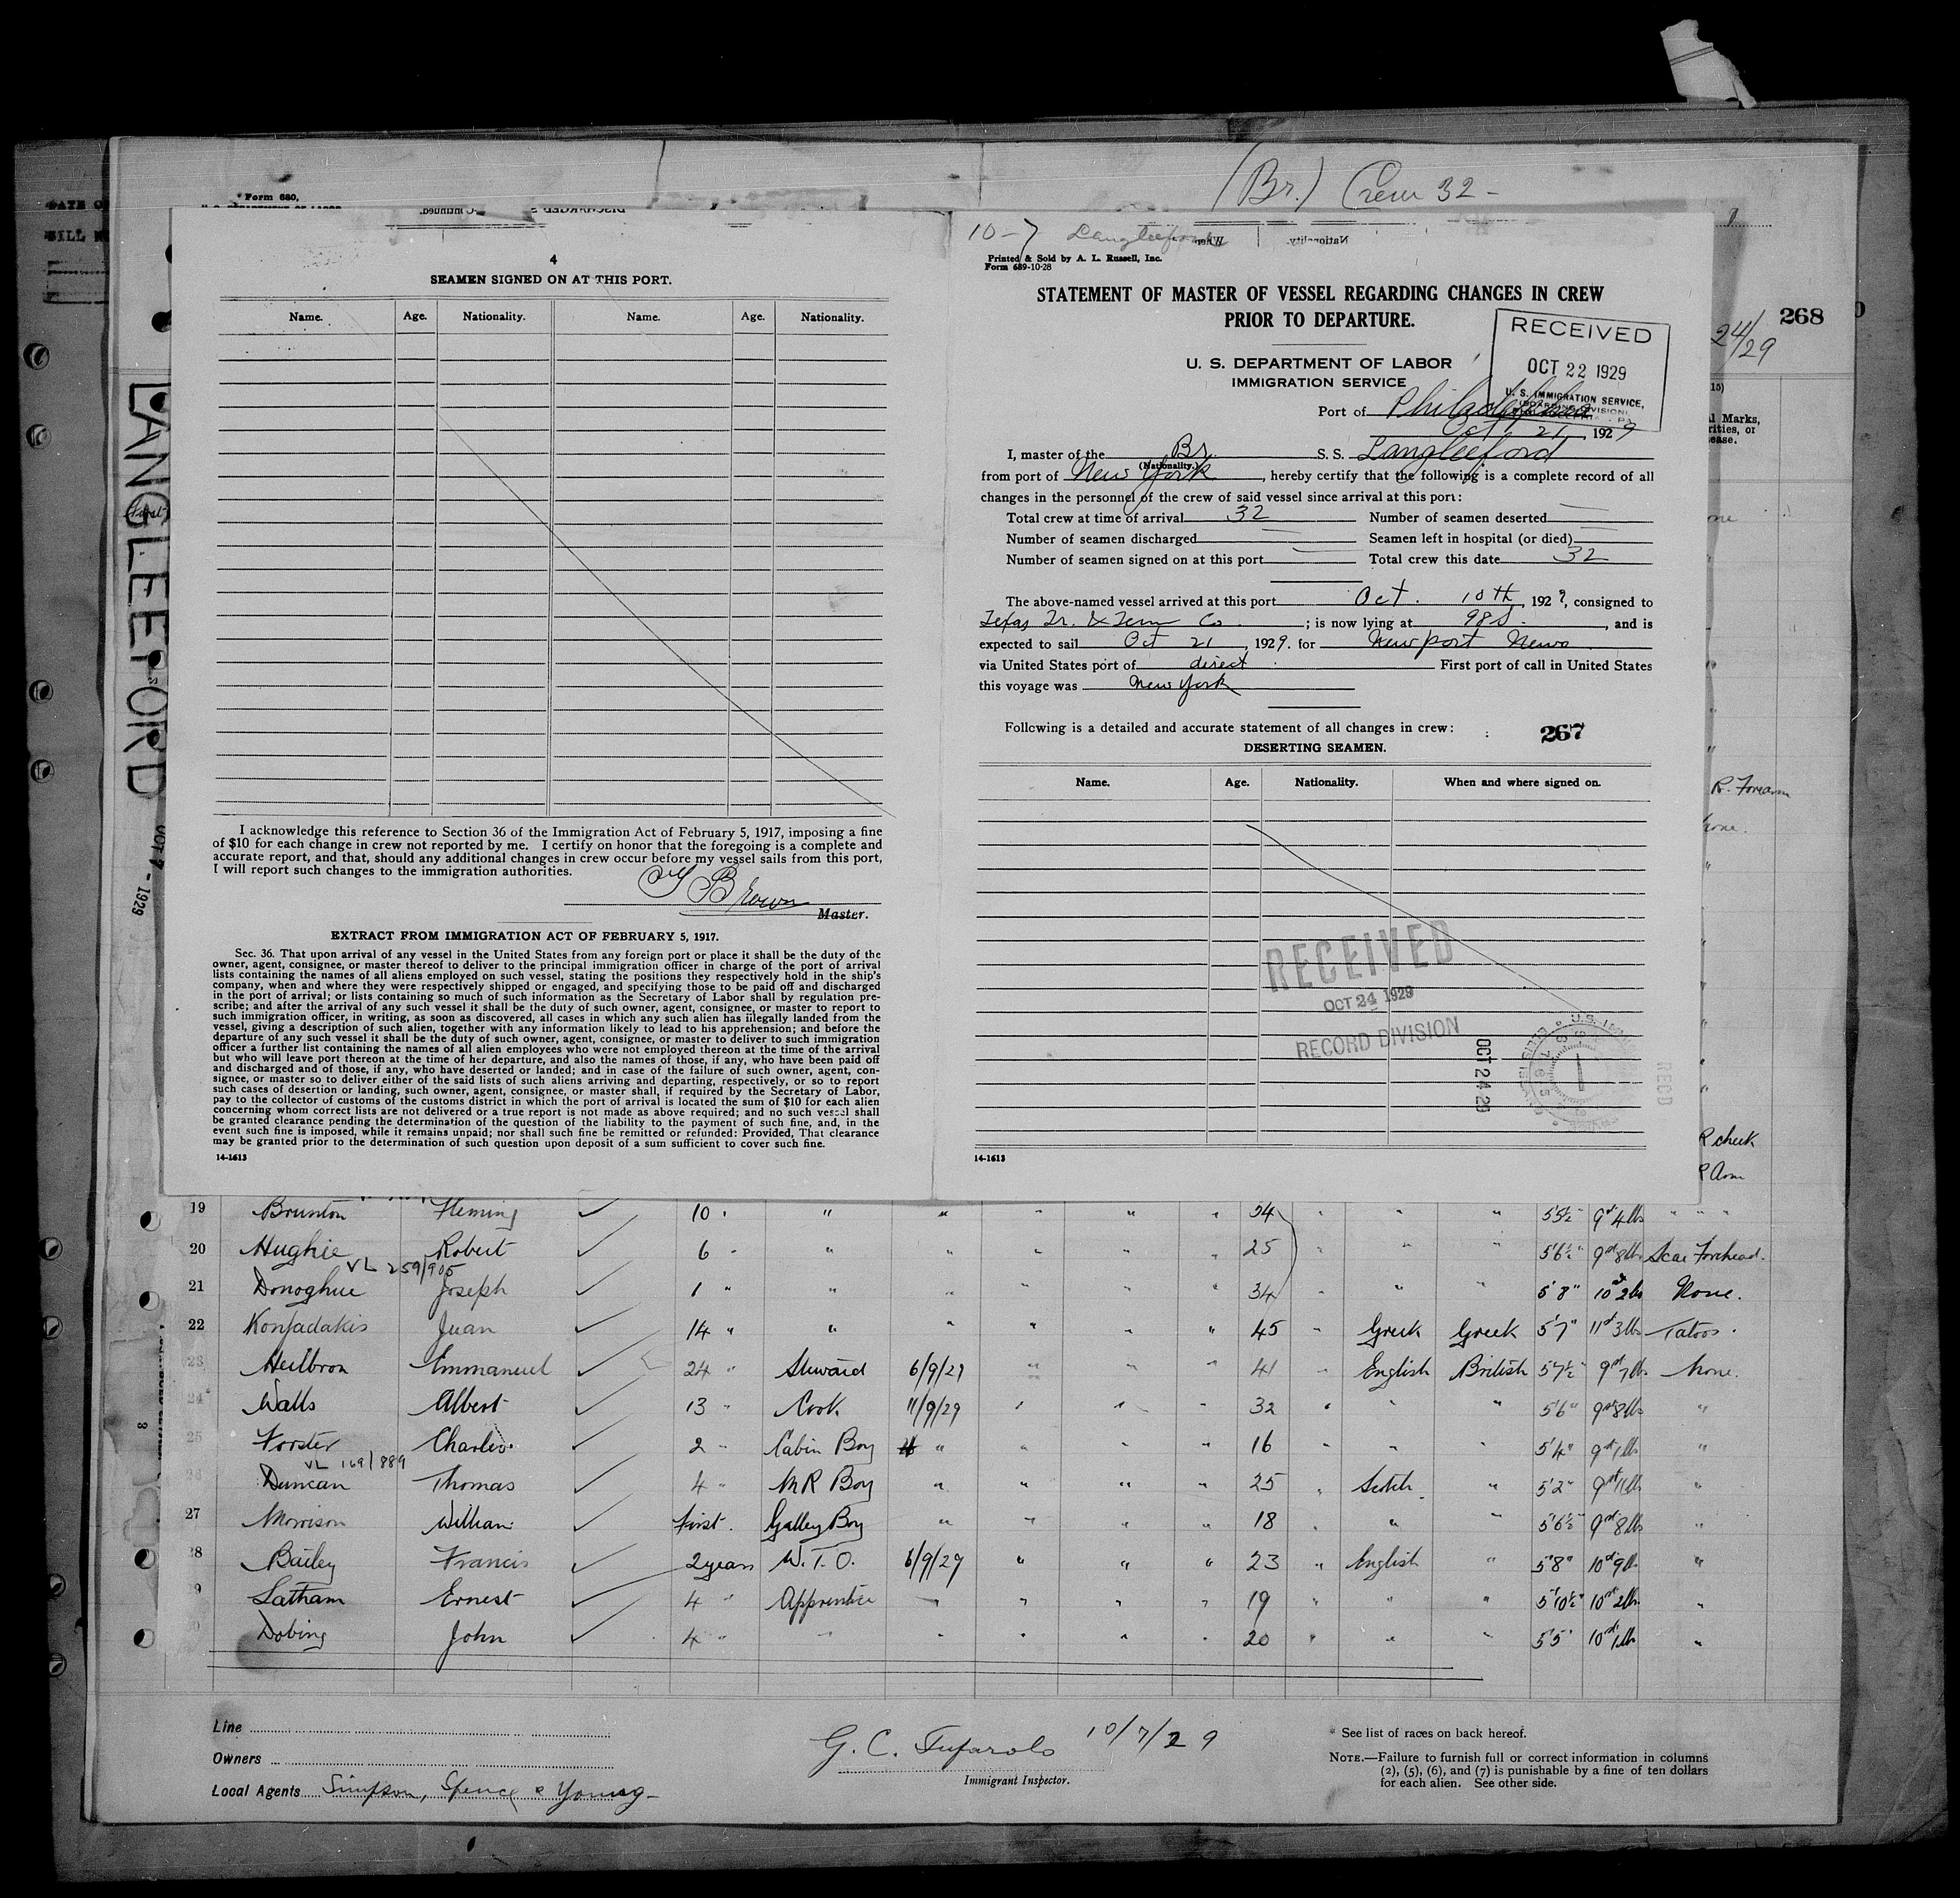 (Br.) Crew 32 -
DATE O
BILL N
Form 680,
268
24/29
15)
l Marks,
rities, or
ease.
LANGLEEFORD
(First)
OCT 7 - 1929
4
SEAMEN SIGNED ON AT THIS PORT.
Name. Age. Nationality. Name. Age. Nationality.
I acknowledge this reference to Section 36 of the Immigration Act of February 5, 1917, imposing a fine
of $10 for each change in crew not reported by me. I certify on honor that the foregoing is a complete and
accurate report, and that, should any additional changes in crew occur before my vessel sails from this port,
I will report such changes to the immigration authorities.
Brown
Master.
EXTRACT FROM IMMIGRATION ACT OF FEBRUARY 5, 1917.
Sec. 36. That upon arrival of any vessel in the United States from any foreign port or place it shall be the duty of the
owner, agent, consignee, or master thereof to deliver to the principal immigration officer in charge of the port of arrival
lists containing the names of all aliens employed on such vessel, stating the positions they respectively hold in the ship's
company, when and where they were respectively shipped or engaged, and specifying those to be paid off and discharged
in the port of arrival; or lists containing so much of such information as the Secretary of Labor shall by regulation pre-
scribe; and after the arrival of any such vessel it shall be the duty of such owner, agent, consignee, or master to report to
such immigration officer, in writing, as soon as discovered, all cases in which any such alien has illegally landed from the
vessel, giving a description of such alien, together with any information likely to lead to his apprehension; and before the
departure of any such vessel it shall be the duty of such owner, agent, consignee, or master to deliver to such immigration
officer a further list containing the names of all alien employees who were not employed thereon at the time of the arrival
but who will leave port thereon at the time of her departure, and also the names of those, if any, who have been paid off
and discharged and of those, if any, who have deserted or landed; and in case of the failure of such owner, agent, con-
signee, or master so to deliver either of the said lists of such aliens arriving and departing, respectively, or so to report
such cases of desertion or landing, such owner, agent, consignee, or master shall, if required by the Secretary of Labor,
pay to the collector of customs of the customs district in which the port of arrival is located the sum of $10 for each alien
concerning whom correct lists are not delivered or a true report is not made as above required; and no such vessel shall
be granted clearance pending the determination of the question of the liability to the payment of such fine, and, in the
event such fine is imposed, while it remains unpaid; nor shall such fine be remitted or refunded: Provided, That clearance
may be granted prior to the determination of such question upon deposit of a sum sufficient to cover such fine.
14-1613
10-7 Langleeford
Printed & Sold by A. L. Russell, Inc.
Form 689-10-28
STATEMENT OF MASTER OF VESSEL REGARDING CHANGES IN CREW
PRIOR TO DEPARTURE.
U. S. DEPARTMENT OF LABOR
IMMIGRATION SERVICE
RECEIVED
OCT 22 1929
U. S. IMMIGRATION SERVICE,
Port of Philadelphia
Oct 21, 1929
I, master of the Br. S. S. Langleeford
(Nationality.)
from port of New York, hereby certify that the following is a complete record of all
changes in the personnel of the crew of said vessel since arrival at this port:
Total crew at time of arrival 32 Number of seamen deserted
Number of seamen discharged Seamen left in hospital (or died)
Number of seamen signed on at this port Total crew this date 32
The above-named vessel arrived at this port Oct. 10th, 1929, consigned to
Texas Tr. & Term Co. ; is now lying at 98 S. , and is
expected to sail Oct 21, 1929. for Newport News
via United States port of direct First port of call in United States
this voyage was New York
Following is a detailed and accurate statement of all changes in crew:
267
DESERTING SEAMEN.
Name. Age. Nationality. When and where signed on.
RECEIVED
OCT 24 1929
RECORD DIVISION
OCT 24 29
RECD
14-1613
R. Forearm
none.
R cheek
R Arm
19 Brunton Fleming ✓ 10 " " " " " " 34 " " " 5'5½" 9st 4lbs " " "
20 Hughie Robert ✓ 6 " " " " " " 25 " " " 5'6½" 9st 8lbs Scar Forehead.
VL 259/905
21 Donoghue Joseph 1 " " " " " " 34 " " " 5'8" 10st 2lbs None.
22 Konfadakis Juan ✓ 14 " " " " " " 45 " Greek Greek 5'7" 11st 3lbs Tatoos.
23 Heilbron Emmanuel ✓ 24 " Steward 6/9/29 " " " 41 " English British 5'7½" 9st 7lbs None.
24 Walls Albert ✓ 13 " Cook 11/9/29 " " " 32 " " " 5'6" 9st 8lbs "
25 Forster Charles ✓ 2 " Cabin Boy " " " " 16 " " " 5'4" 9st 1lb "
VL 169/889
26 Duncan Thomas ✓ 4 " M R Boy " " " " 25 " Scotch " 5'2" 9st 11lb "
27 Morrison William ✓ First. Galley Boy " " " " 18 " " " 5'6½" 9st 8lb "
28 Bailey Francis ✓ 2 years W. T. O. 6/9/29 " " " 23 " English " 5'8" 10st 9lb "
29 Latham Ernest ✓ 4 " Apprentice " " " " 19 " " " 5'10½" 10st 2lb "
30 Dobing John ✓ 4 " " " " " " 20 " " " 5'5" 10st 1lb "
Line
Owners
Local Agents Simpson, Spence & Young
G. C. 10/7/29
Immigrant Inspector.
* See list of races on back hereof.
NOTE.—Failure to furnish full or correct information in columns
(2), (5), (6), and (7) is punishable by a fine of ten dollars
for each alien. See other side.